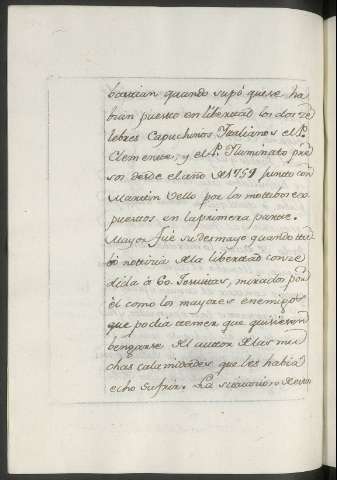 bastian quando supó que se ha
bian puesto en libertad los dos ce
lebres Capuchinos Italianos el P.
Clemente, y el P. Iluminato pre
sos desde el año de 1751 junto con
Martin Vello por los motibos ex
puestos en la primera parte.
Mayor fue su desmayo quando tu
bó noticia de la libertad conce
dida à 60. Jesuitas, mirados por
èl como los mayores enemigos
que podia temer que quisieran
bengarse del autor de las mu
chas calamidades que les habia
echo sufrir. La situacion de